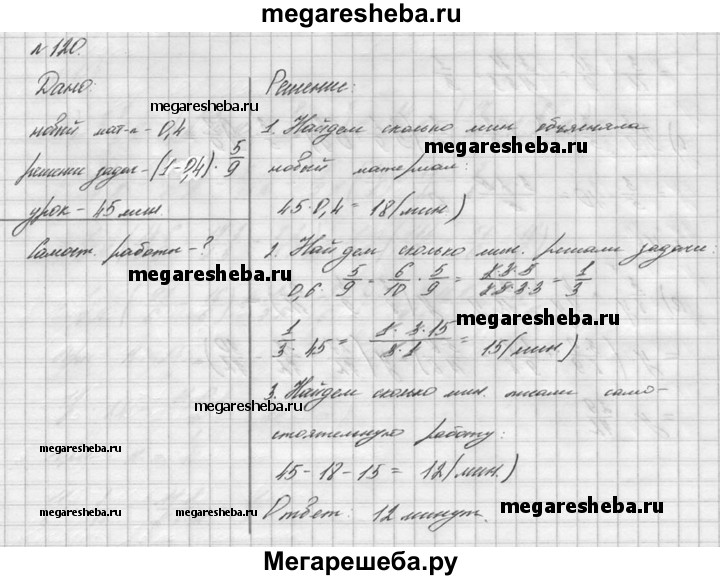 megaresheba.ru
№ 120.
Дано:
новый мат-л - 0,4
решении задач - (1-0,4) · 5/9
урок - 45 мин.
Самост. работы - ?
Решение:
1. Найдем сколько мин объясняла
новый материал:
45·0,4 = 18 (мин)
2. Найдем сколько мин. решали задачи:
0,6 · 5/9 = 6/10 · 5/9 = = 1/3
1/3 · 45 = = 15 (мин)
3. Найдем сколько мин. писали само-
стоятельную работу:
45 - 18 - 15 = 12 (мин.)
Ответ: 12 минут.
megaresheba.ru
megaresheba.ru
megaresheba.ru
megaresheba.ru
megaresheba.ru
megaresheba.ru
megaresheba.ru
megaresheba.ru
megaresheba.ru
Мегарешеба.ру